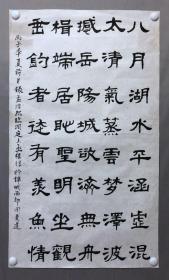 八月湖水平涵虛混
太清氣蒸雲夢澤波
撼岳陽城欲濟無舟
楫端居恥聖明坐觀
垂釣者徒有羨魚情
丙子年夏錄孟浩然臨洞庭上張丞相